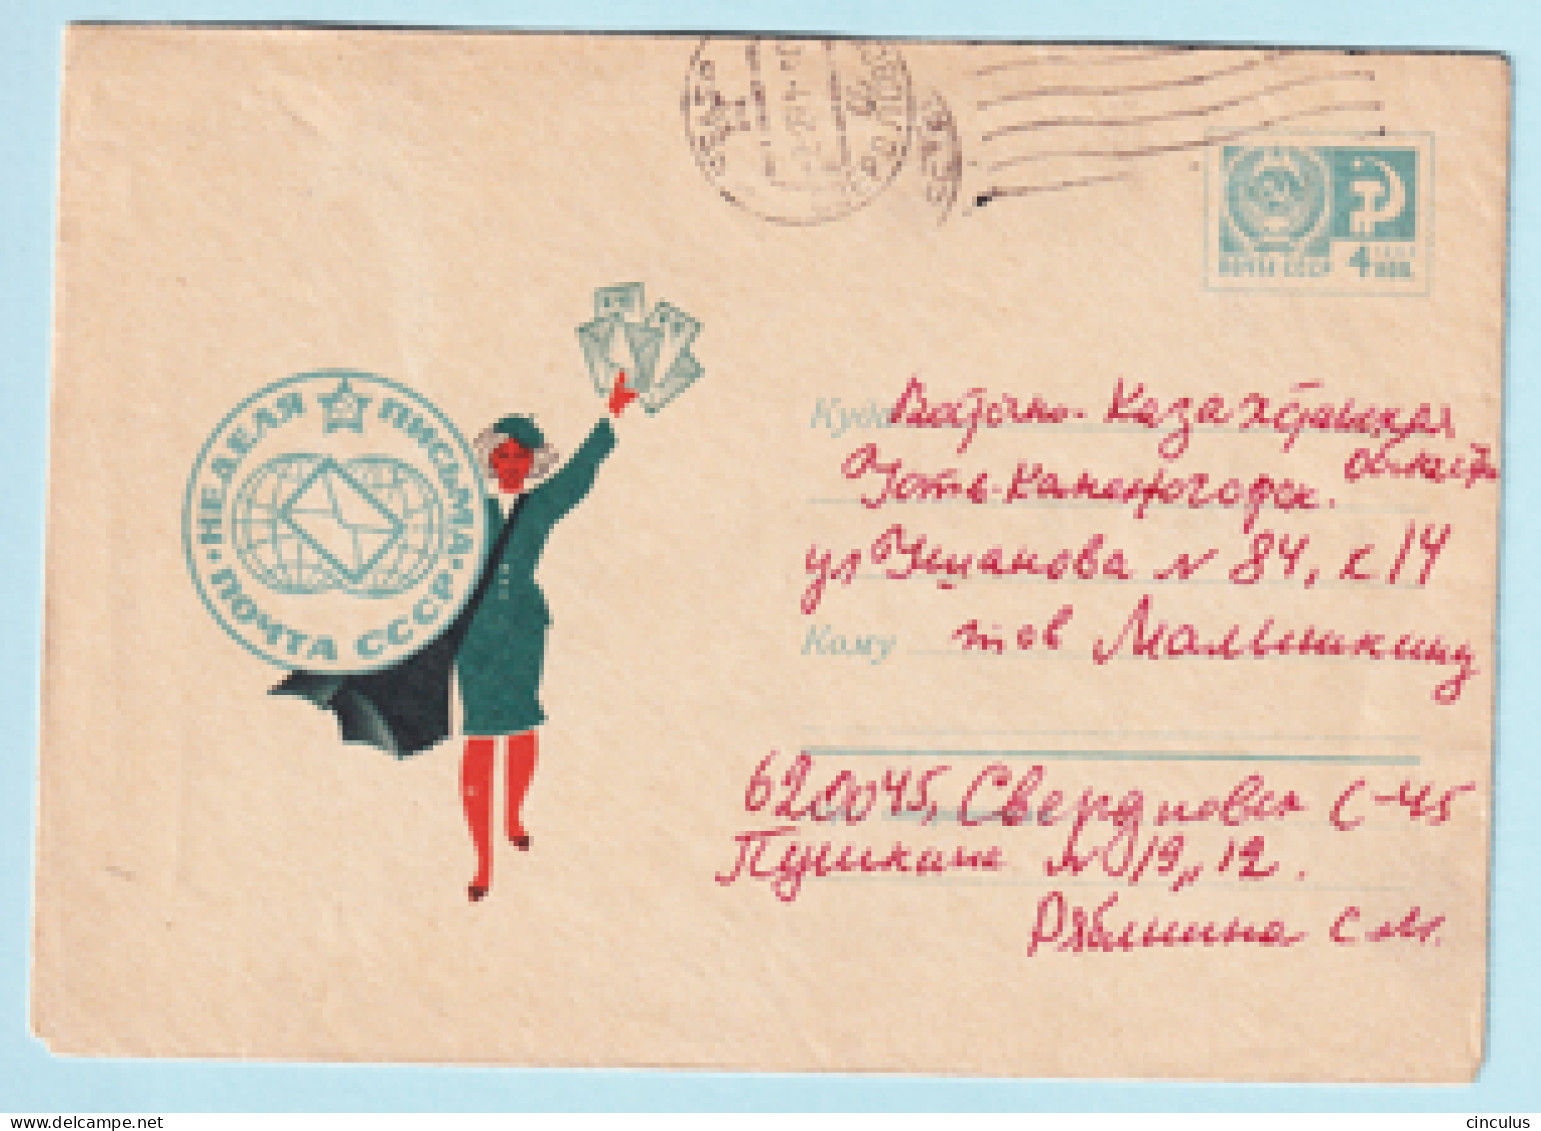 НЕДЕЛЯ ПИСЬМА
ПОЧТА СССР
ПОЧТА СССР 4 КОП.
Куда Восточно-Казахстанская
область
Усть-Каменогорск.
ул Ушанова N 84, к 14
Кому тов Малышкину
620045, Свердловск С-45
Пушкина N 19, 12.
Рябинина С М.
delcampe.net
cinculus